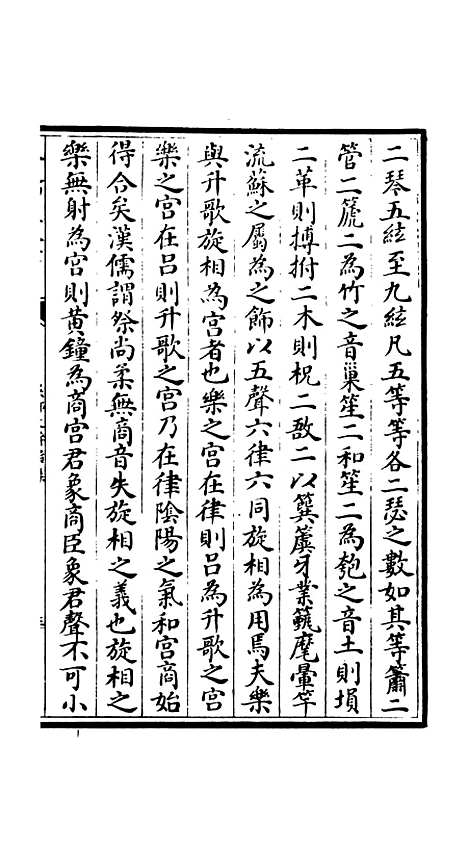 二琴五絃至九絃凡五等等各二瑟之數如其等簫二
管二篪二為竹之音巢笙二和笙二為匏之音土則塤
二革則搏拊二木則柷二敔二以簨簴牙業　麾翬竿
流蘇之屬為之飾以五聲六律六同旋相為用焉夫樂
與升歌旋相為宮者也樂之宮在律則呂為升歌之宮
樂之宮在呂則升歌之宮乃在律陰陽之氣和宮商始
得合矣漢儒謂祭尚柔無商音失旋相之義也旋相之
樂無射為宮則黃鐘為商宮君象商臣象君聲不可小